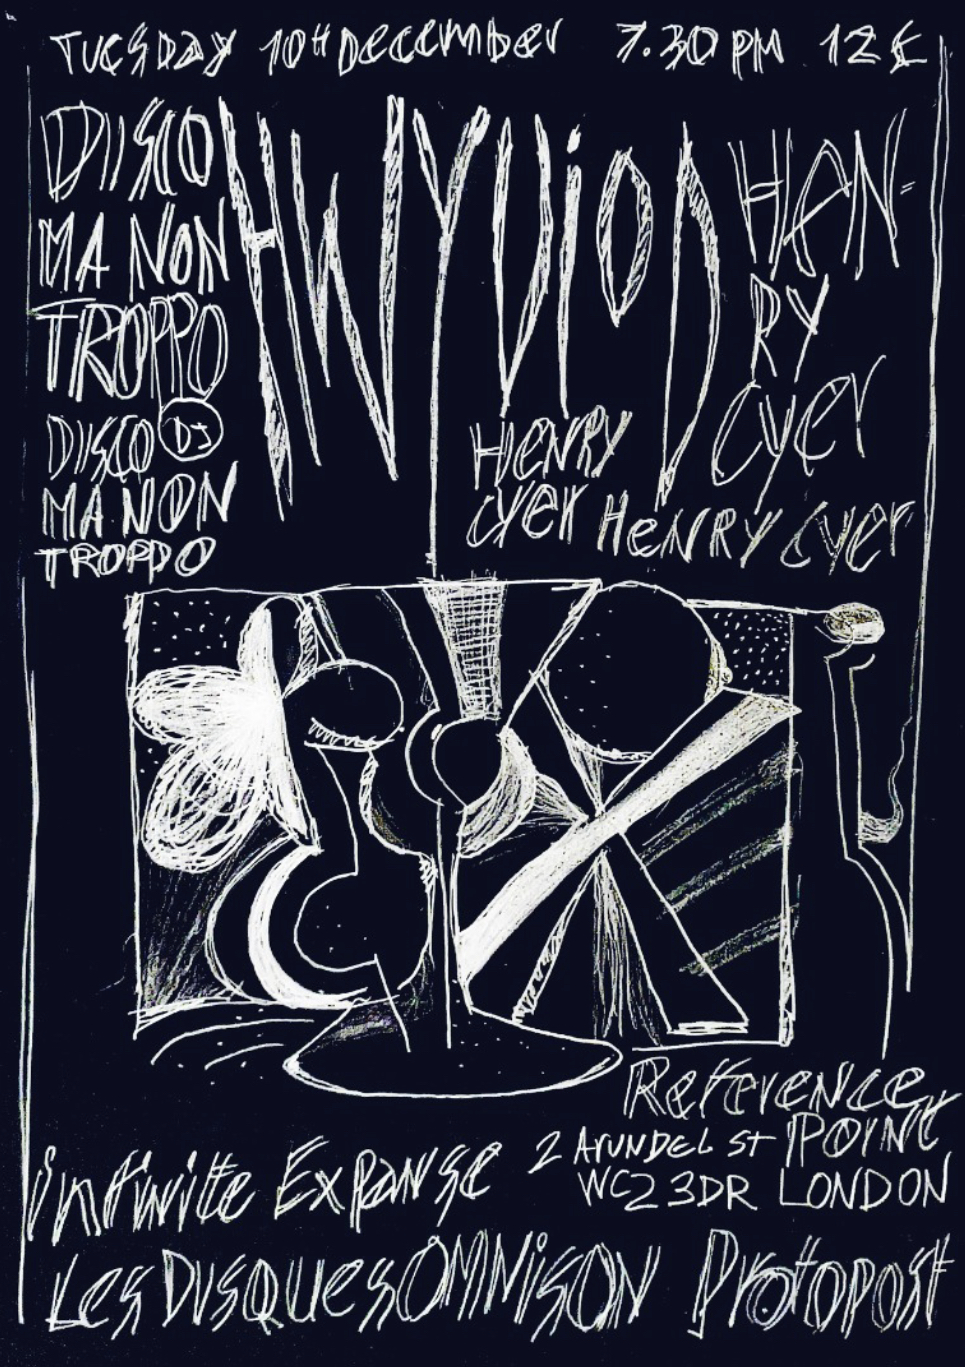 TUESDAY 10TH DECEMBER 7.30 PM 12£
DISCO
MA NON
TROPPO
DISCO DJ
MA NON
TROPPO
HWYVION
HEN-
RY
CYER
HENRY
CYER HENRY CYER
REFERENCE
POINT
2 ARUNDEL ST
WC2 3DR LONDON
infinite Expanse
Les DisquesOMNiSON Protopost